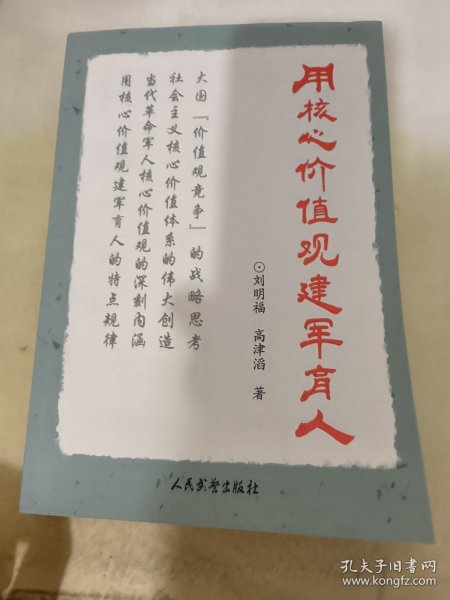 用核心价值观建军育人
⊙刘明福 高津滔 著
大国『价值观竞争』的战略思考
社会主义核心价值体系的伟大创造
当代革命军人核心价值观的深刻内涵
用核心价值观建军育人的特点规律
人民武警出版社
孔夫子旧书网
www.kongfz.com